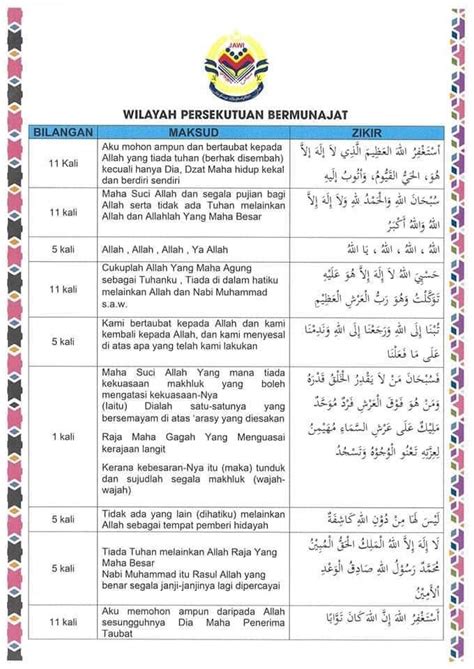 JAWI
WILAYAH PERSEKUTUAN BERMUNAJAT
BILANGAN MAKSUD ZIKIR
11 Kali
Aku mohon ampun dan bertaubat kepada
Allah yang tiada tuhan (berhak disembah)
kecuali hanya Dia, Dzat Maha hidup kekal
dan berdiri sendiri
أَسْتَغْفِرُ اللهَ العَظِيمَ الَّذِي لَا إِلَهَ إِلَّا
هُوَ، الحَيُّ القَيُّومُ، وَأَتُوبُ إِلَيْهِ
11 kali
Maha Suci Allah dan segala pujian bagi
Allah serta tidak ada Tuhan melainkan
Allah dan Allahlah Yang Maha Besar
سُبْحَانَ اللهِ وَالْحَمْدُ للهِ وَلَا إِلَهَ إِلَّا
اللهُ وَاللهُ أَكْبَرُ
5 kali
Allah , Allah , Allah , Ya Allah
اللهُ ، اللهُ ، اللهُ ، يَا اللهُ
11 kali
Cukuplah Allah Yang Maha Agung
sebagai Tuhanku , Tiada di dalam hatiku
melainkan Allah dan Nabi Muhammad
s.a.w.
حَسْبِيَ اللهُ لَا إِلَهَ إِلَّا هُوَ عَلَيْهِ
تَوَكَّلْتُ وَهُوَ رَبُّ الْعَرْشِ الْعَظِيْمِ
5 kali
Kami bertaubat kepada Allah dan kami
kembali kepada Allah, dan kami menyesal
di atas apa yang telah kami lakukan
تُبْنَا إِلَى اللهِ وَرَجَعْنَا إِلَى اللهِ وَنَدِمْنَا
عَلَى مَا فَعَلْنَا
1 kali
Maha Suci Allah Yang mana tiada
kekuasaan makhluk yang boleh
mengatasi kekuasaan-Nya
(Iaitu) Dialah satu-satunya yang
bersemayam di atas 'arasy yang diesakan
Raja Maha Gagah Yang Menguasai
kerajaan langit
Kerana kebesaran-Nya itu (maka) tunduk
dan sujudlah segala makhluk (wajah-
wajah)
فَسُبْحَانَ مَنْ لَا يَقْدِرُ الْخَلْقُ قَدْرَهُ
وَمَنْ هُوَ فَوْقَ الْعَرْشِ فَرْدٌ مُوَحَّدٌ
مَلِيْكٌ عَلَى عَرْشِ السَّمَاءِ مُهَيْمِنٌ
لِعِزَّتِهِ تَعْنُو الْوُجُوْهُ وَتَسْجُدُ
5 kali
Tidak ada yang lain (dihatiku) melainkan
Allah sebagai tempat pemberi hidayah
لَيْسَ لَهَا مِنْ دُوْنِ اللهِ كَاشِفَةٌ
5 kali
Tiada Tuhan melainkan Allah Raja Yang
Maha Besar
Nabi Muhammad itu Rasul Allah yang
benar segala janji-janjinya lagi dipercayai
لَا إِلَهَ إِلَّا اللهُ الْمَلِكُ الْحَقُّ الْمُبِيْنُ
مُحَمَّدٌ رَسُوْلُ اللهِ صَادِقُ الْوَعْدِ
الْأَمِيْنُ
11 kali
Aku memohon ampun daripada Allah
sesungguhnya Dia Maha Penerima
Taubat
أَسْتَغْفِرُ اللهَ إِنَّ اللهَ كَانَ تَوَّابًا